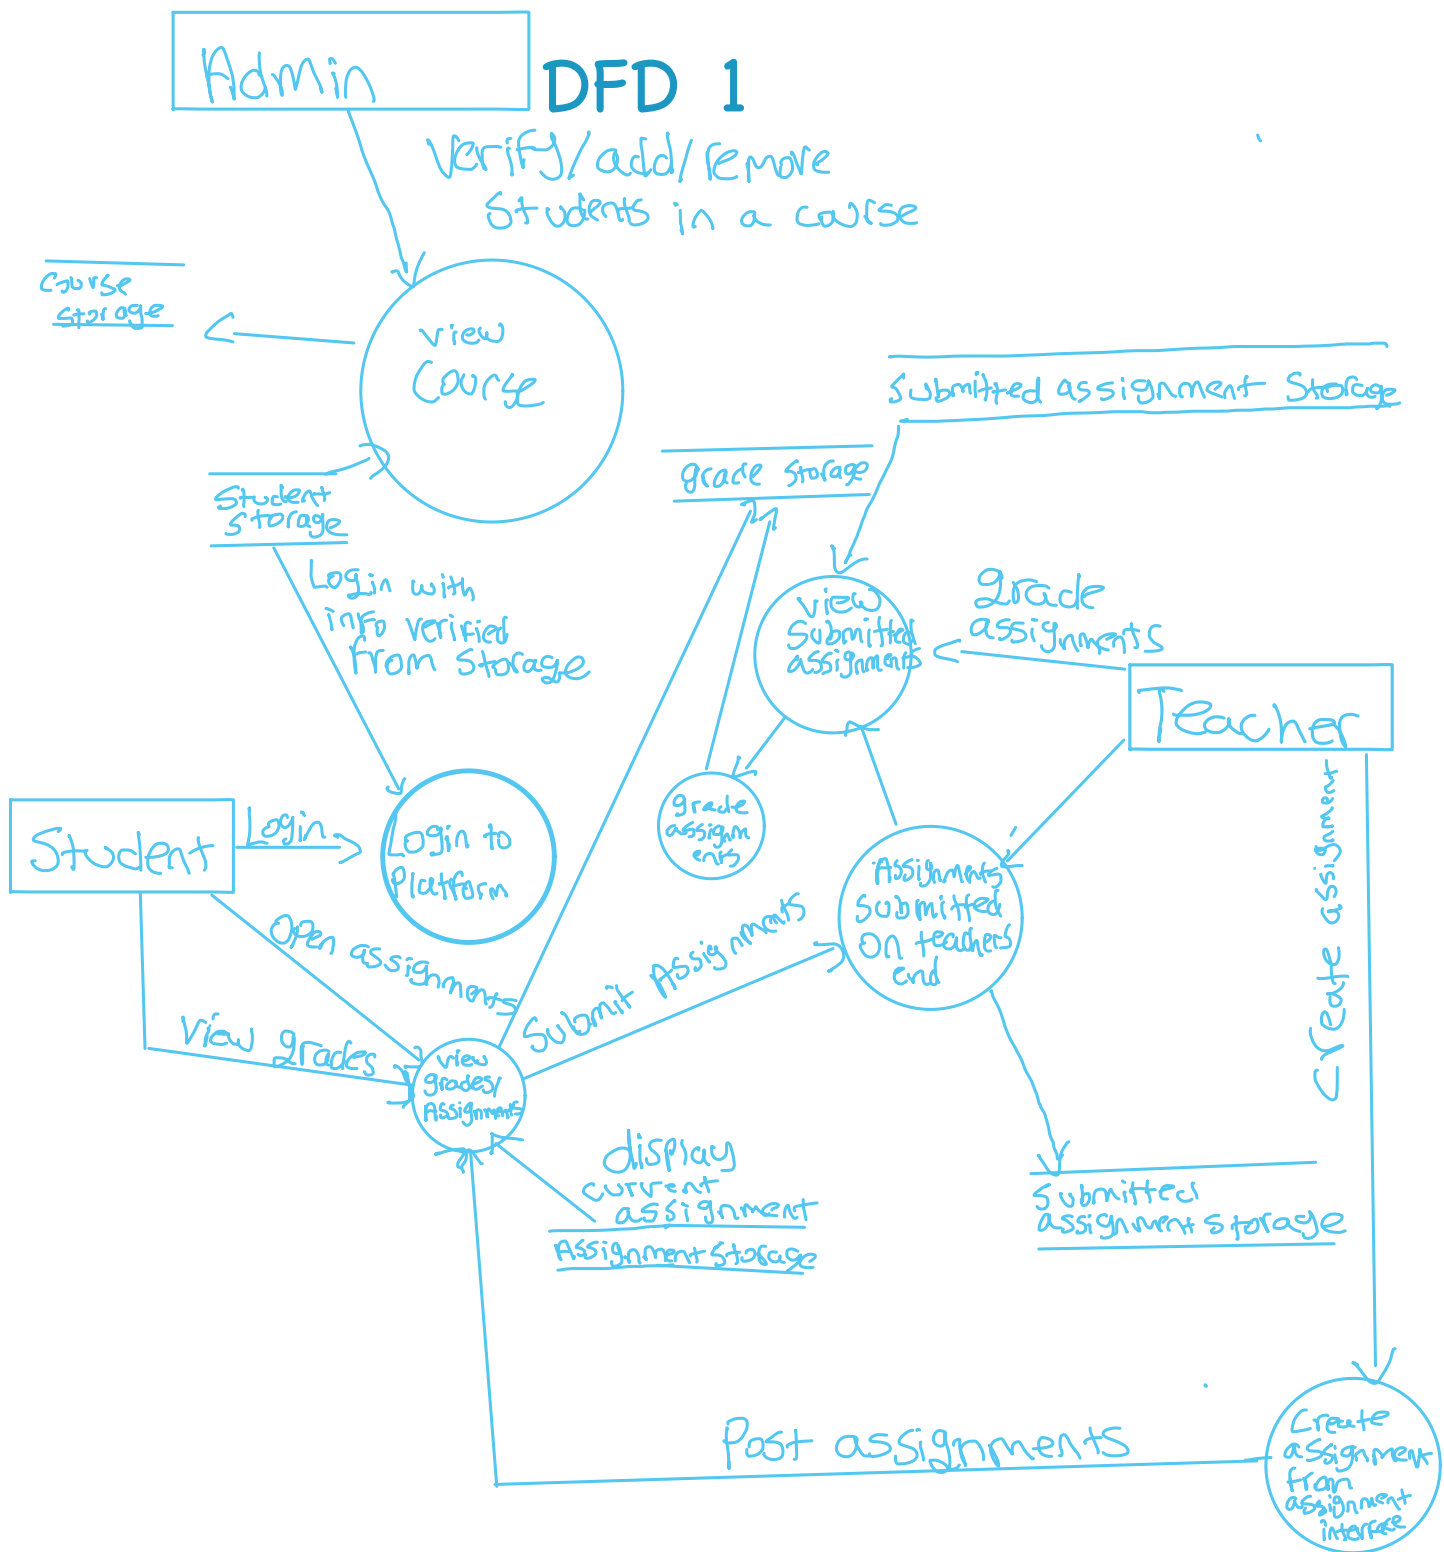 Admin
DFD 1
Verify/add/remove
Students in a course
Course
Storage
View
Course
Submitted assignment Storage
grade storage
Student
Storage
Login with
info verified
from storage
View
Submitted
assignments
grade
assignments
Teacher
Student
Login
Login to
Platform
grade
assignm
ents
Assignments
submitted
on teachers
end
Create assignment
Open assignments
Submit Assignments
View grades
view
grades/
Assignments
display
current
assignment
Assignment Storage
Submitted
assignment storage
Post assignments
Create
assignment
from
assignment
interface